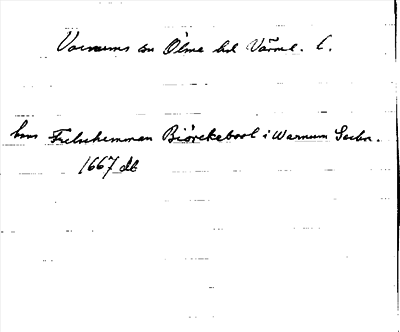 Varnums sn Ölme hd Värml. l.
hms Frelsehemman Biörckebool i Warnum Sochn.
1667 db